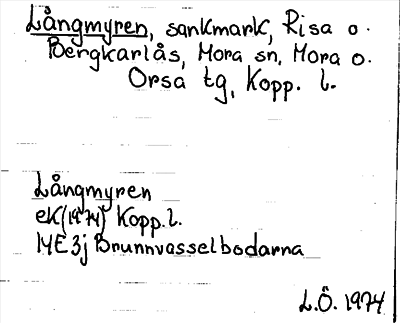 Långmyren, sankmark, Risa o.
Bergkarlås, Mora sn, Mora o.
Orsa tg, Kopp. l.
Långmyren
eK(1974) Kopp.l.
14E 3j Brunnvasselbodarna
L.Ö. 1974